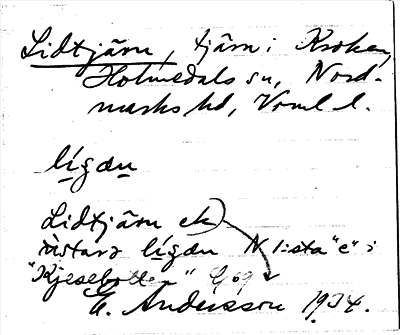 Lidtjärn, tjärn i Kroken,
Holmedals sn, Nord-
marks hd, Vrml l.
lígdn
Lidtjärn ek
lígdn N lista "e" i
"Kjesebotten"
E. Andersson 1934.